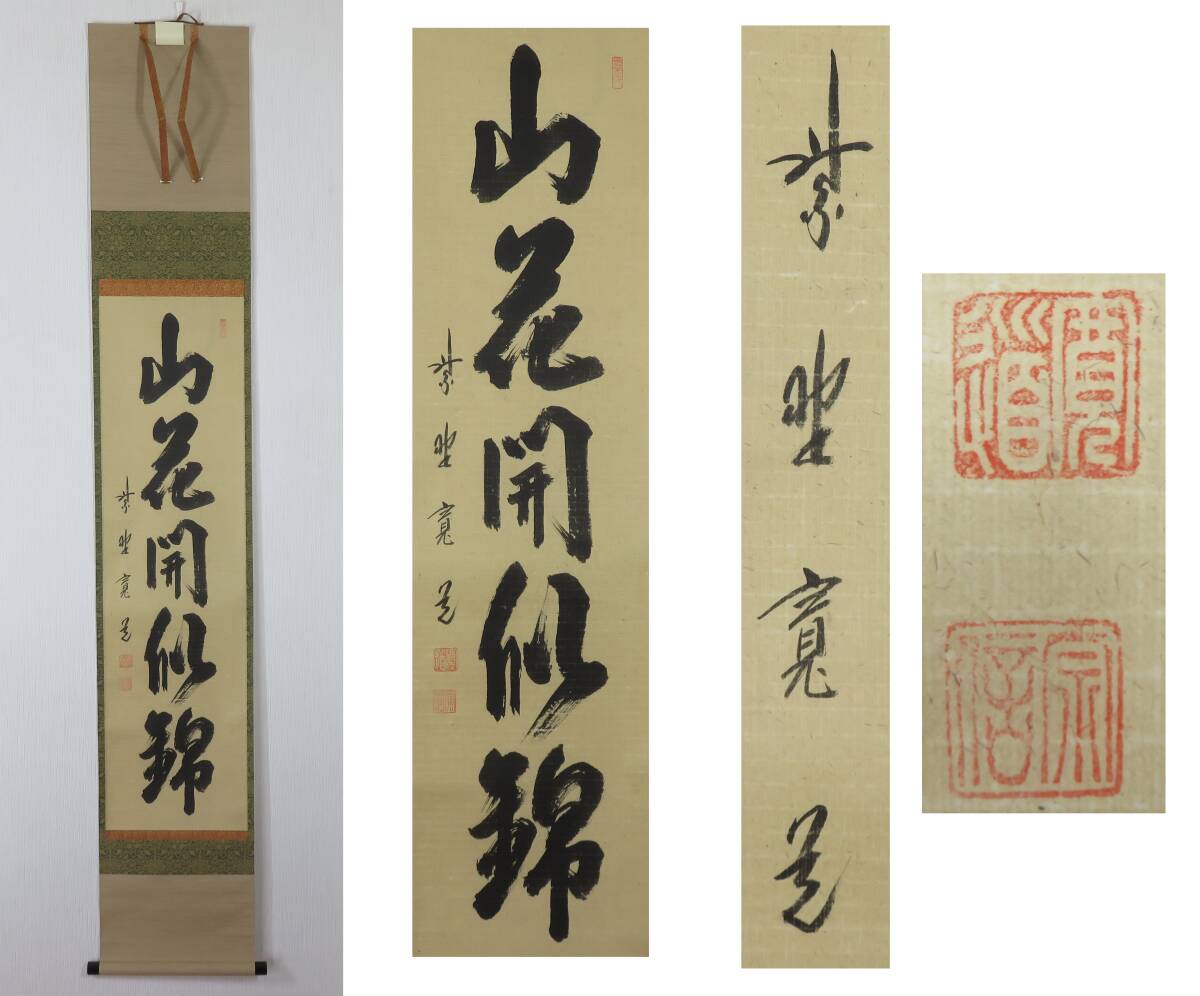 山花開似錦
紫野寛道
山花開似錦
紫野寛道
紫野寛道
寛道
宗信